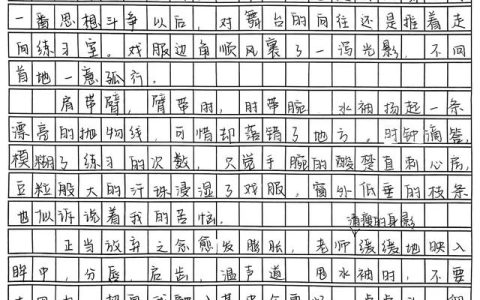 一番思想斗争以后，对舞台的向往还是推着走
向练习室。戏服边角顺风裹了一泻光影，不回
首地一意孤行。
肩带臂，臂带肘，肘带腕 水袖扬起一条
漂亮的抛物线，可惜却落错了地方。时钟滴答，
模糊了练习的次数，只觉手腕的酸楚直刺心房，
豆粒般大的汗珠浸湿了戏服，窗外低垂的枝条
也似诉说着我的苦恼。
清瘦的身影
正当放弃之念愈发膨胀，老师缓缓地映入
眸中，分唇，启齿，温声道 甩水袖时，不要